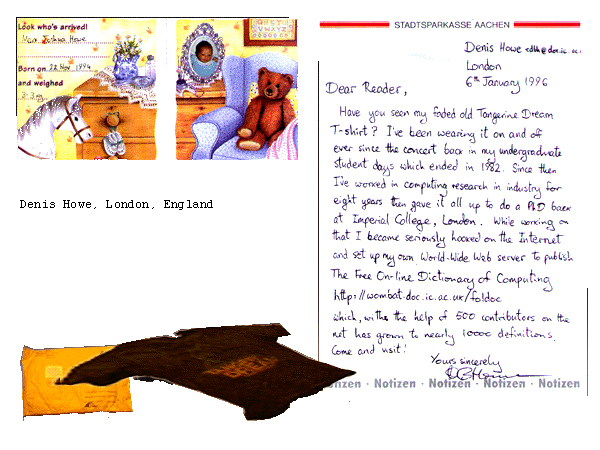 Look who's arrived!
Max Joshua Howe
Born on 22 Nov 1994
and weighed
Denis Howe, London, England
STADTSPARKASSE AACHEN
Denis Howe
London
6th January 1996
Dear Reader,
Have you seen my faded old Tangerine Dream
T-shirt? I've been wearing it on and off
ever since the concert back in my undergraduate
student days which ended in 1982. Since then
I've worked in computing research in industry for
eight years then gave it all up to do a PhD back
at Imperial College, London. While working on
that I became seriously hooked on the Internet
and set up my own World-Wide Web server to publish
The Free On-line Dictionary of Computing
http://wombat.doc.ic.ac.uk/foldoc
which, with the help of 500 contributors on the
net has grown to nearly 10000 definitions.
Come and visit!
Yours sincerely
Notizen · Notizen · Notizen · Notizen · Notizen